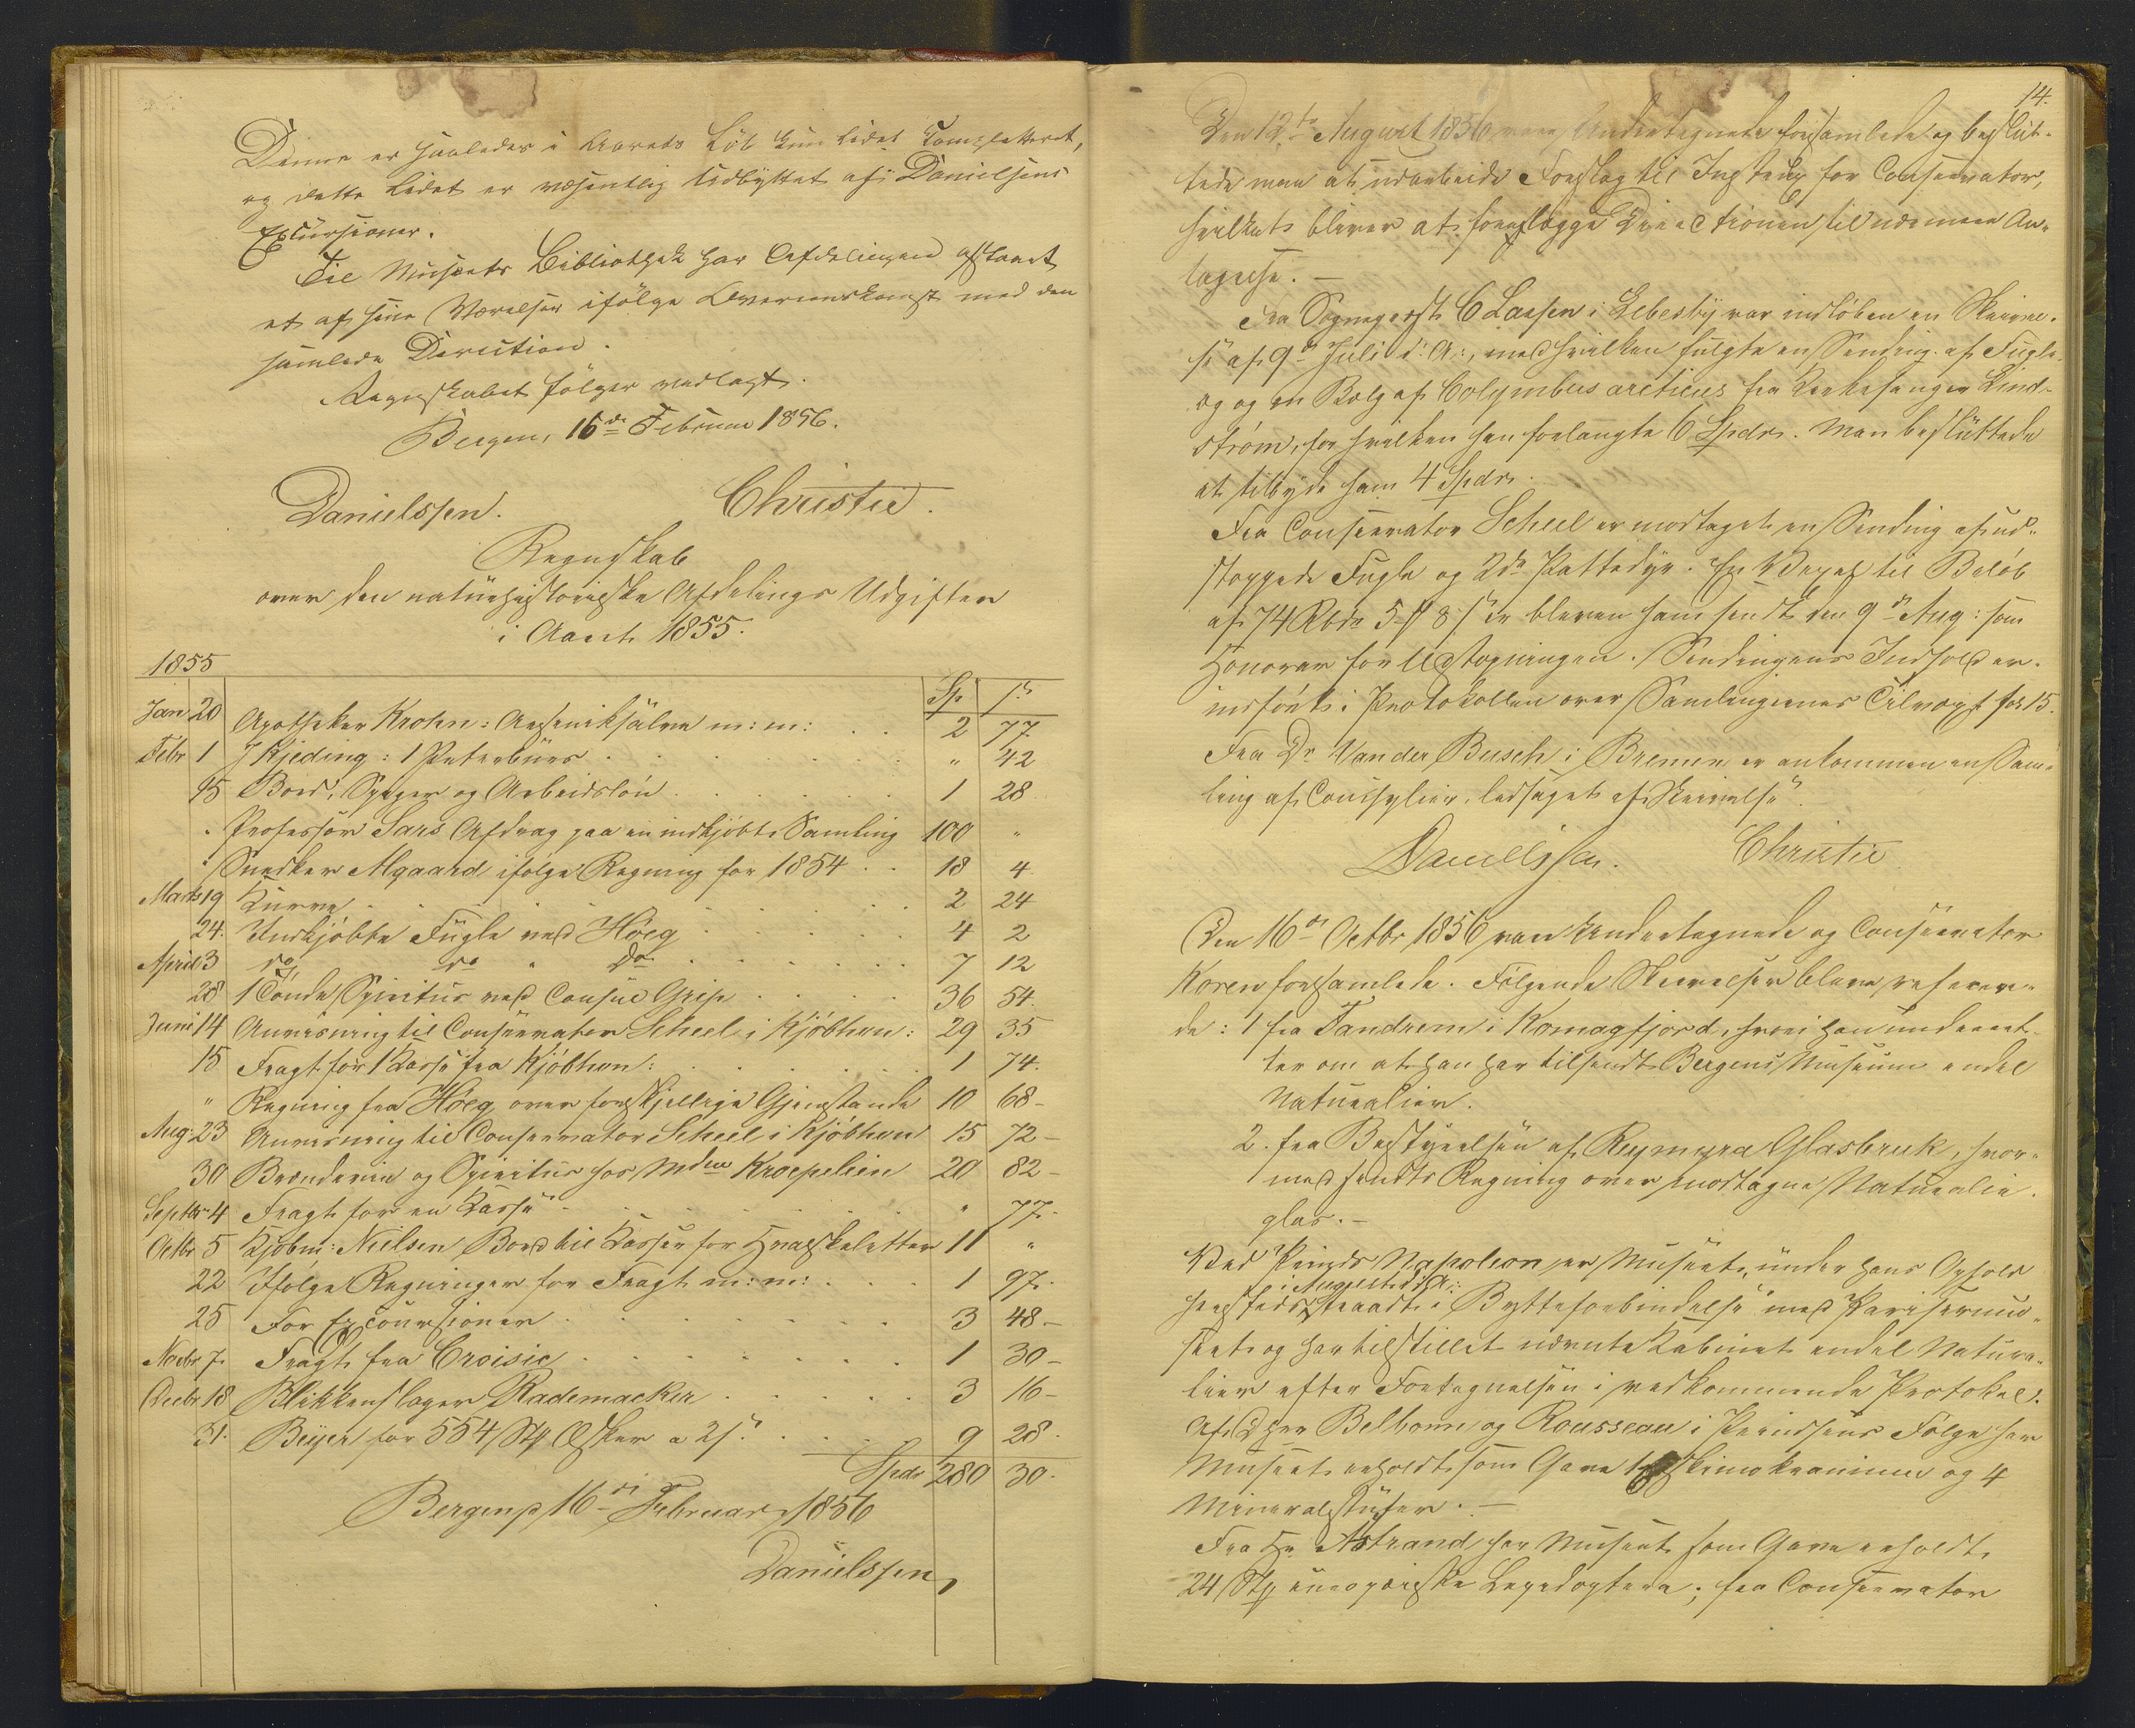 Denne er saaledes i Aarets Løb kun lidet completteret,
og dette Lidet er væsentlig Udbyttet af Danielsens
Excursioner.
Til Musæets Bibliothek har Afdelingen afstaaet
et af sine Værelser ifølge Overenskomst med den
samlede Direction.
Regnskabet følger vedlagt.
Bergen, 16de Februar 1856.
Danielssen. Christie.
Regnskab
over den naturhistoriske Afdelings Udgifter
i Aaret 1855.
1855
Sp ſs
Jan 20 Apotheker Krohn: Arseniksalve m: m: 2 77
Febr 1 J Kjeding: 1 Peterbuur " 42
15 Bord, Spiger og Arbeidsløn 1 28
" Professor Sars Afdrag paa en indkjøbt Samling 100 "
" Snedker Algaard ifølge Regning for 1854 18 4
Marts 19 Kurve 2 24
24. Indkjøbte Fugle ved Høeg 4 2
April 3 do do " do 7 12
28 1 Tønde Spiritus ved Consul Grip 36 54.
Juni 14 Anvisning til Conservator Scheel i Kjøbhvn: 29 35
15 Fragt for 1 Kasse fra Kjøbhvn: 1 74.
" Regning fra Høeg over forskjellige Gjenstande 10 68-
Aug: 23 Anvisning til Conservator Scheel i Kjøbhvn 15 72-
30 Brændeviin og Spiritus hos Mdme Kroepelien 20 82-
Septbr 4 Fragt for en Kasse " 77.
Octbr 5 Kjøbm: Nielsen Bord til Kasser for Hvalskeletter 11 "
22 Ifølge Regninger for Fragt m: m: 1 97.
25 For Excoursioner 3 48-
Novbr 7. Fragt fra Croisic 1 30-
Decbr 18 Blikkenslager Rademacker 3 16-
31. Beyer for 554 Stk Æsker a 2s. 9 28.
Spdr 280 30.
Bergen p 16de Februar 1856
Danielssen
14.
Den 12te August 1856 vare Undertegnede forsamlede og beslut-
tede man at udarbeide Forslag til Instrux for Conservator,
hvilket bliver at forelægge Directionen til nærmere An-
tagelse. -
Fra Sognepræst C Laasen i Lebesby var indløben en Skrivel-
se af 9de Juli d: A:, med hvilken fulgte en Sending af Fugle
og og en Bælg af Colymbus arcticus fra Kirkesanger Lind-
strøm, for hvilken han forlangte 6 Spdr. Man besluttede
at tilbyde ham 4 Spdr.
Fra Conservator Scheel er modtaget en Sending af ud-
stoppede Fugle og 2de Pattedyr. En Vexel til Beløb
af 74 Rbdr 5 # 8 s er bleven ham sendt den 9de Aug: som
Honorar for Udstopningen. Sendingens Indhold er
indført i Protokollen over Samlingernes Tilvæxt fol 15.
Fra Dr Van der Busch i Bremen er ankommen en Sam-
ling af Conchylier, ledsaget af Skrivelse.
Danielssen. Christie
Den 16de Octbr 1856 vare Undertegnede og Conservator
Koren forsamlede. Følgende Skrivelser bleve refere-
de: 1 fra Tandrem i Komagfjord, hvori han underret-
ter om at han har tilsendt Bergens Museum endel
Naturalier.
2. fra Bestyrelsen af Reymyra Glasbruk, hvor-
med sendts Regning over modtagne Naturalie-
glas. -
Ved Prinds Napoleon er Museet, under hans Ophold
i August d: A:
hersteds traadt i Bytteforbindelse med Parisermu-
seet og har tilstillet nævnte Kabinet endel Natura-
lier efter Fortegnelsen i vedkommende Protokol.
Af DHrr Belhome og Rousseau i Prindsens Følge har
Museet erholdt som Gave 1 Eskimokranium og 4
Mineralstufer. -
Fra Hr Åstrand har Museet som Gave erholdt
24 Stk europæiske Lepidoptera; fra Conservator